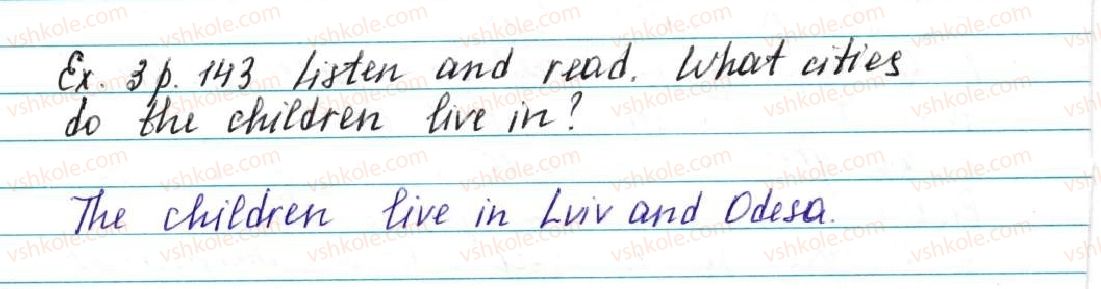 Ex. 3 p. 143 Listen and read. What cities
do the children live in?
The children live in Lviv and Odesa.